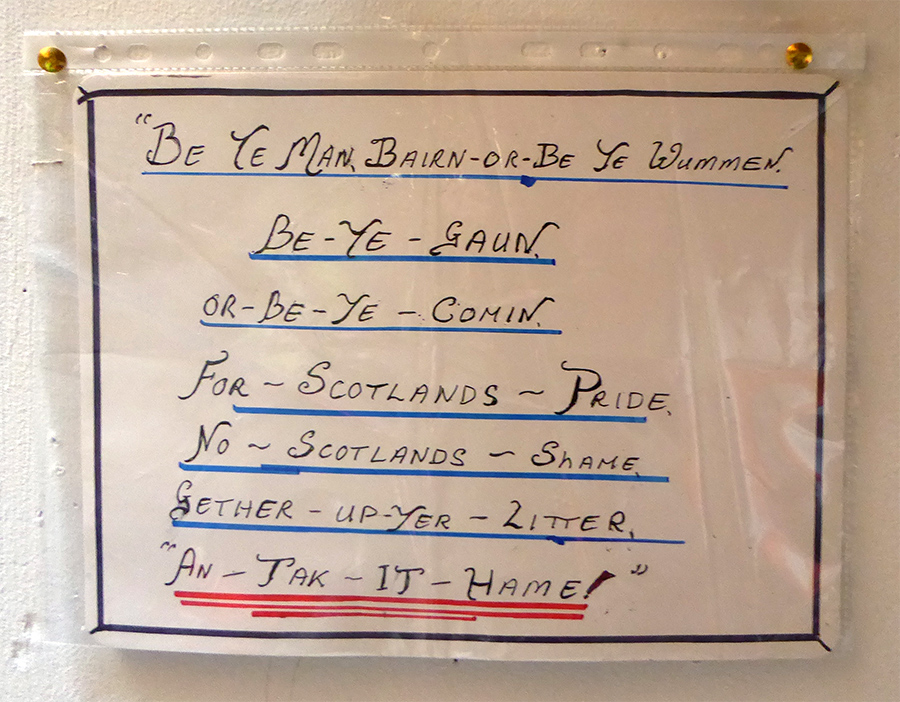 "Be Ye Man, Bairn-or-Be Ye Wummen.
Be-Ye - Gaun,
or-Be-Ye - Comin,
For ~ Scotlands ~ Pride,
No ~ Scotlands ~ Shame,
Gether - up-Yer - Litter,
"An - Tak ~ it - Hame!"